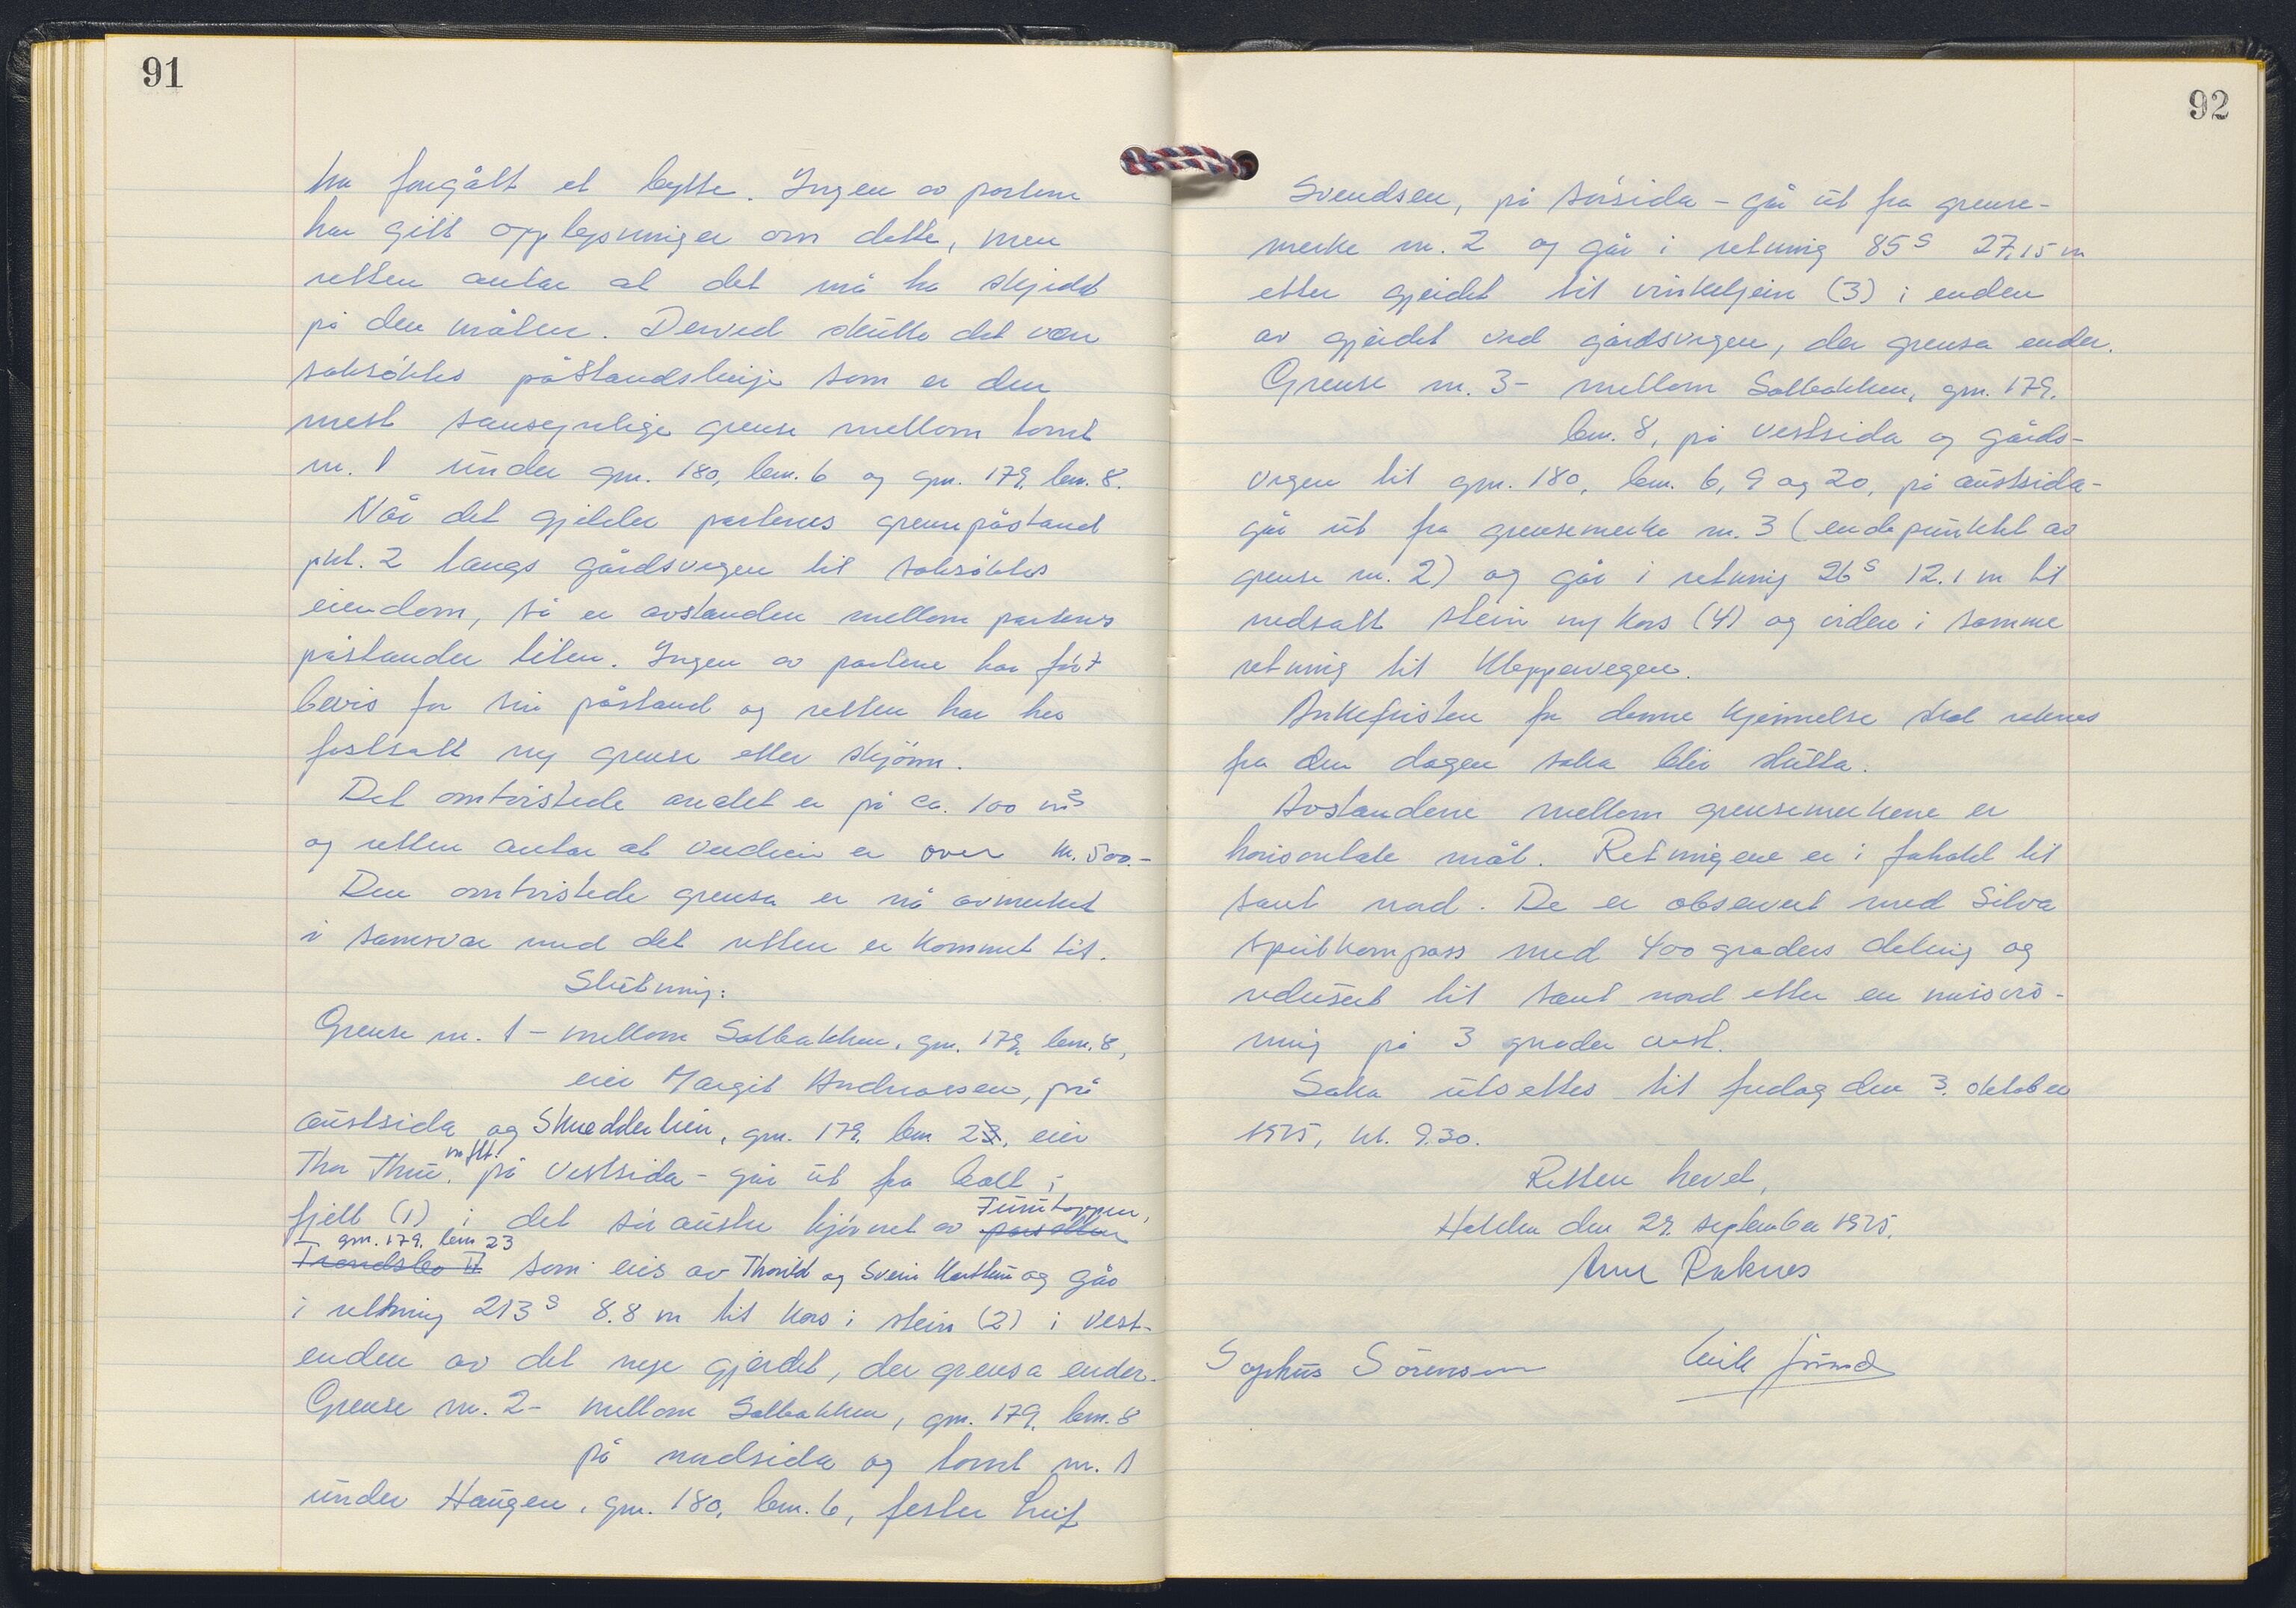 91
ha foregått et bytte. Ingen av partene
har gitt opplysninger om dette, men
retten antar at det må ha skjedd
på den måten. Derved skulle det være
saksøktes påstandslinje som er den
mest sansynlige grense mellom tomt
nr. 1 under gnr. 180, bnr. 6 og gnr. 179, bnr. 8.
Når det gjelder partenes grensepåstand
pkt. 2 langs gårdsvegen til saksøktes
eiendom, så er avstanden mellom partenes
påstander liten. Ingen av partene har ført
bevis for sin påstand og retten har her
fastsatt ny grense etter skjønn.
Det omtvistede arealet er på ca. 100 m²
og retten antar at verdien er over kr. 500.-
Den omtvistede grensa er nå avmerket
i samsvar med det retten er kommet til.
Slutning:
Grense nr. 1 - mellom Solbakken, gnr. 179, bnr. 8,
eier Margit Andreassen, på
austsida og Skredderheien, gnr. 179, bnr. 2, eier
Thor Thue m/fl. på vestsida - går ut fra bolt i
fjell (1) i det søraustre hjørnet av parsellen Furutoppen,
Trondsbo II gnr. 179, bnr 23 som eies av Thorild og Svein Karlthun og går
i retning 213g 8.8 m til kors i stein (2) i vest-
enden av det nye gjerdet, der grensa ender.
Grense nr. 2 - mellom Solbakken, gnr. 179, bnr. 8
på nordsida og tomt nr. 1
under Haugen, gnr. 180, bnr. 6, fester Leif
92
Svendsen, på sørsida - går ut fra grense-
merke nr. 2 og går i retning 85g 27,15 m
etter gjerdet til vinkeljern (3) i enden
av gjerdet ved gårdsvegen, der grensa ender.
Grense nr. 3 - mellom Solbakken, gnr. 179,
bnr. 8, på vestsida og gårds-
vegen til gnr. 180, bnr. 6, 9 og 20, på austsida -
går ut fra grensemerke nr. 3 (endepunktet av
grense nr. 2) og går i retning 26g 12.1 m til
nedsatt stein m/ kors (4) og videre i samme
retning til Kleppervegen.
Ankefristen for denne kjennelse skal reknes
fra den dagen saka blir slutta.
Avstandene mellom grensemerkene er
horisontale mål. Retningene er i forhold til
sant nord. De er observert med Silva
speilkompass med 400 graders deling og
redusert til sant nord etter en misvis-
ning på 3 grader vest.
Saka utsettes til fredag den 3. oktober
1975, kl. 9.30.
Retten hevet,
Halden den 29. september 1975.
Arne Raknes
Sophus Sørensen Erik